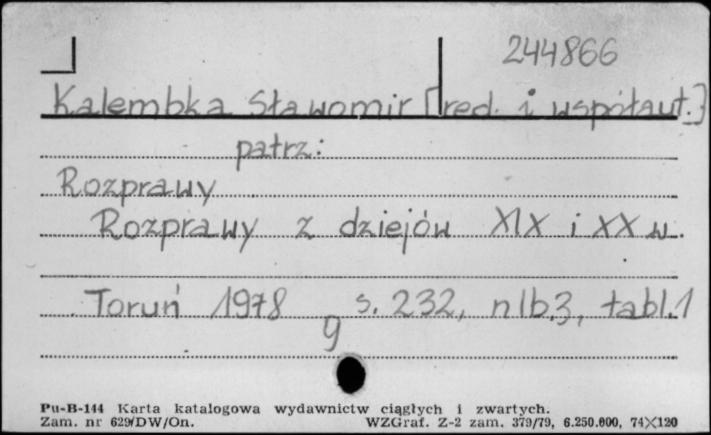 244866
Kalembka Sławomir [red. i współaut.]
patrz:
Rozprawy
Rozprawy z dziejów XIX i XX w.
Toruń 1978 s. 232, nlb.3, tabl.1
g
Pu-B-144 Karta katalogowa wydawnictw ciągłych i zwartych.
Zam. nr 629/DW/On. WZGraf. Z-2 zam. 379/79, 6.250.000, 74×120